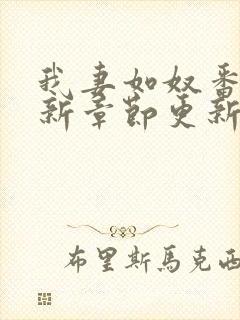 我妻如奴番
新章節更新
布里斯馬克西